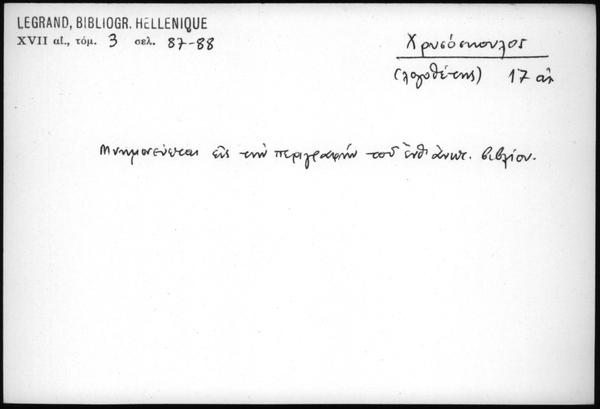 LEGRAND, BIBLIOGR. HELLENIQUE
XVII αἰ., τόμ. 3 σελ. 87-88
Χρυσόσκουλος
(λογοθέτης) 17 αἰ
Μνημονεύεται εἰς τὴν περιγραφὴν τοῦ ἔνθ. ἀνωτ. βιβλίου.